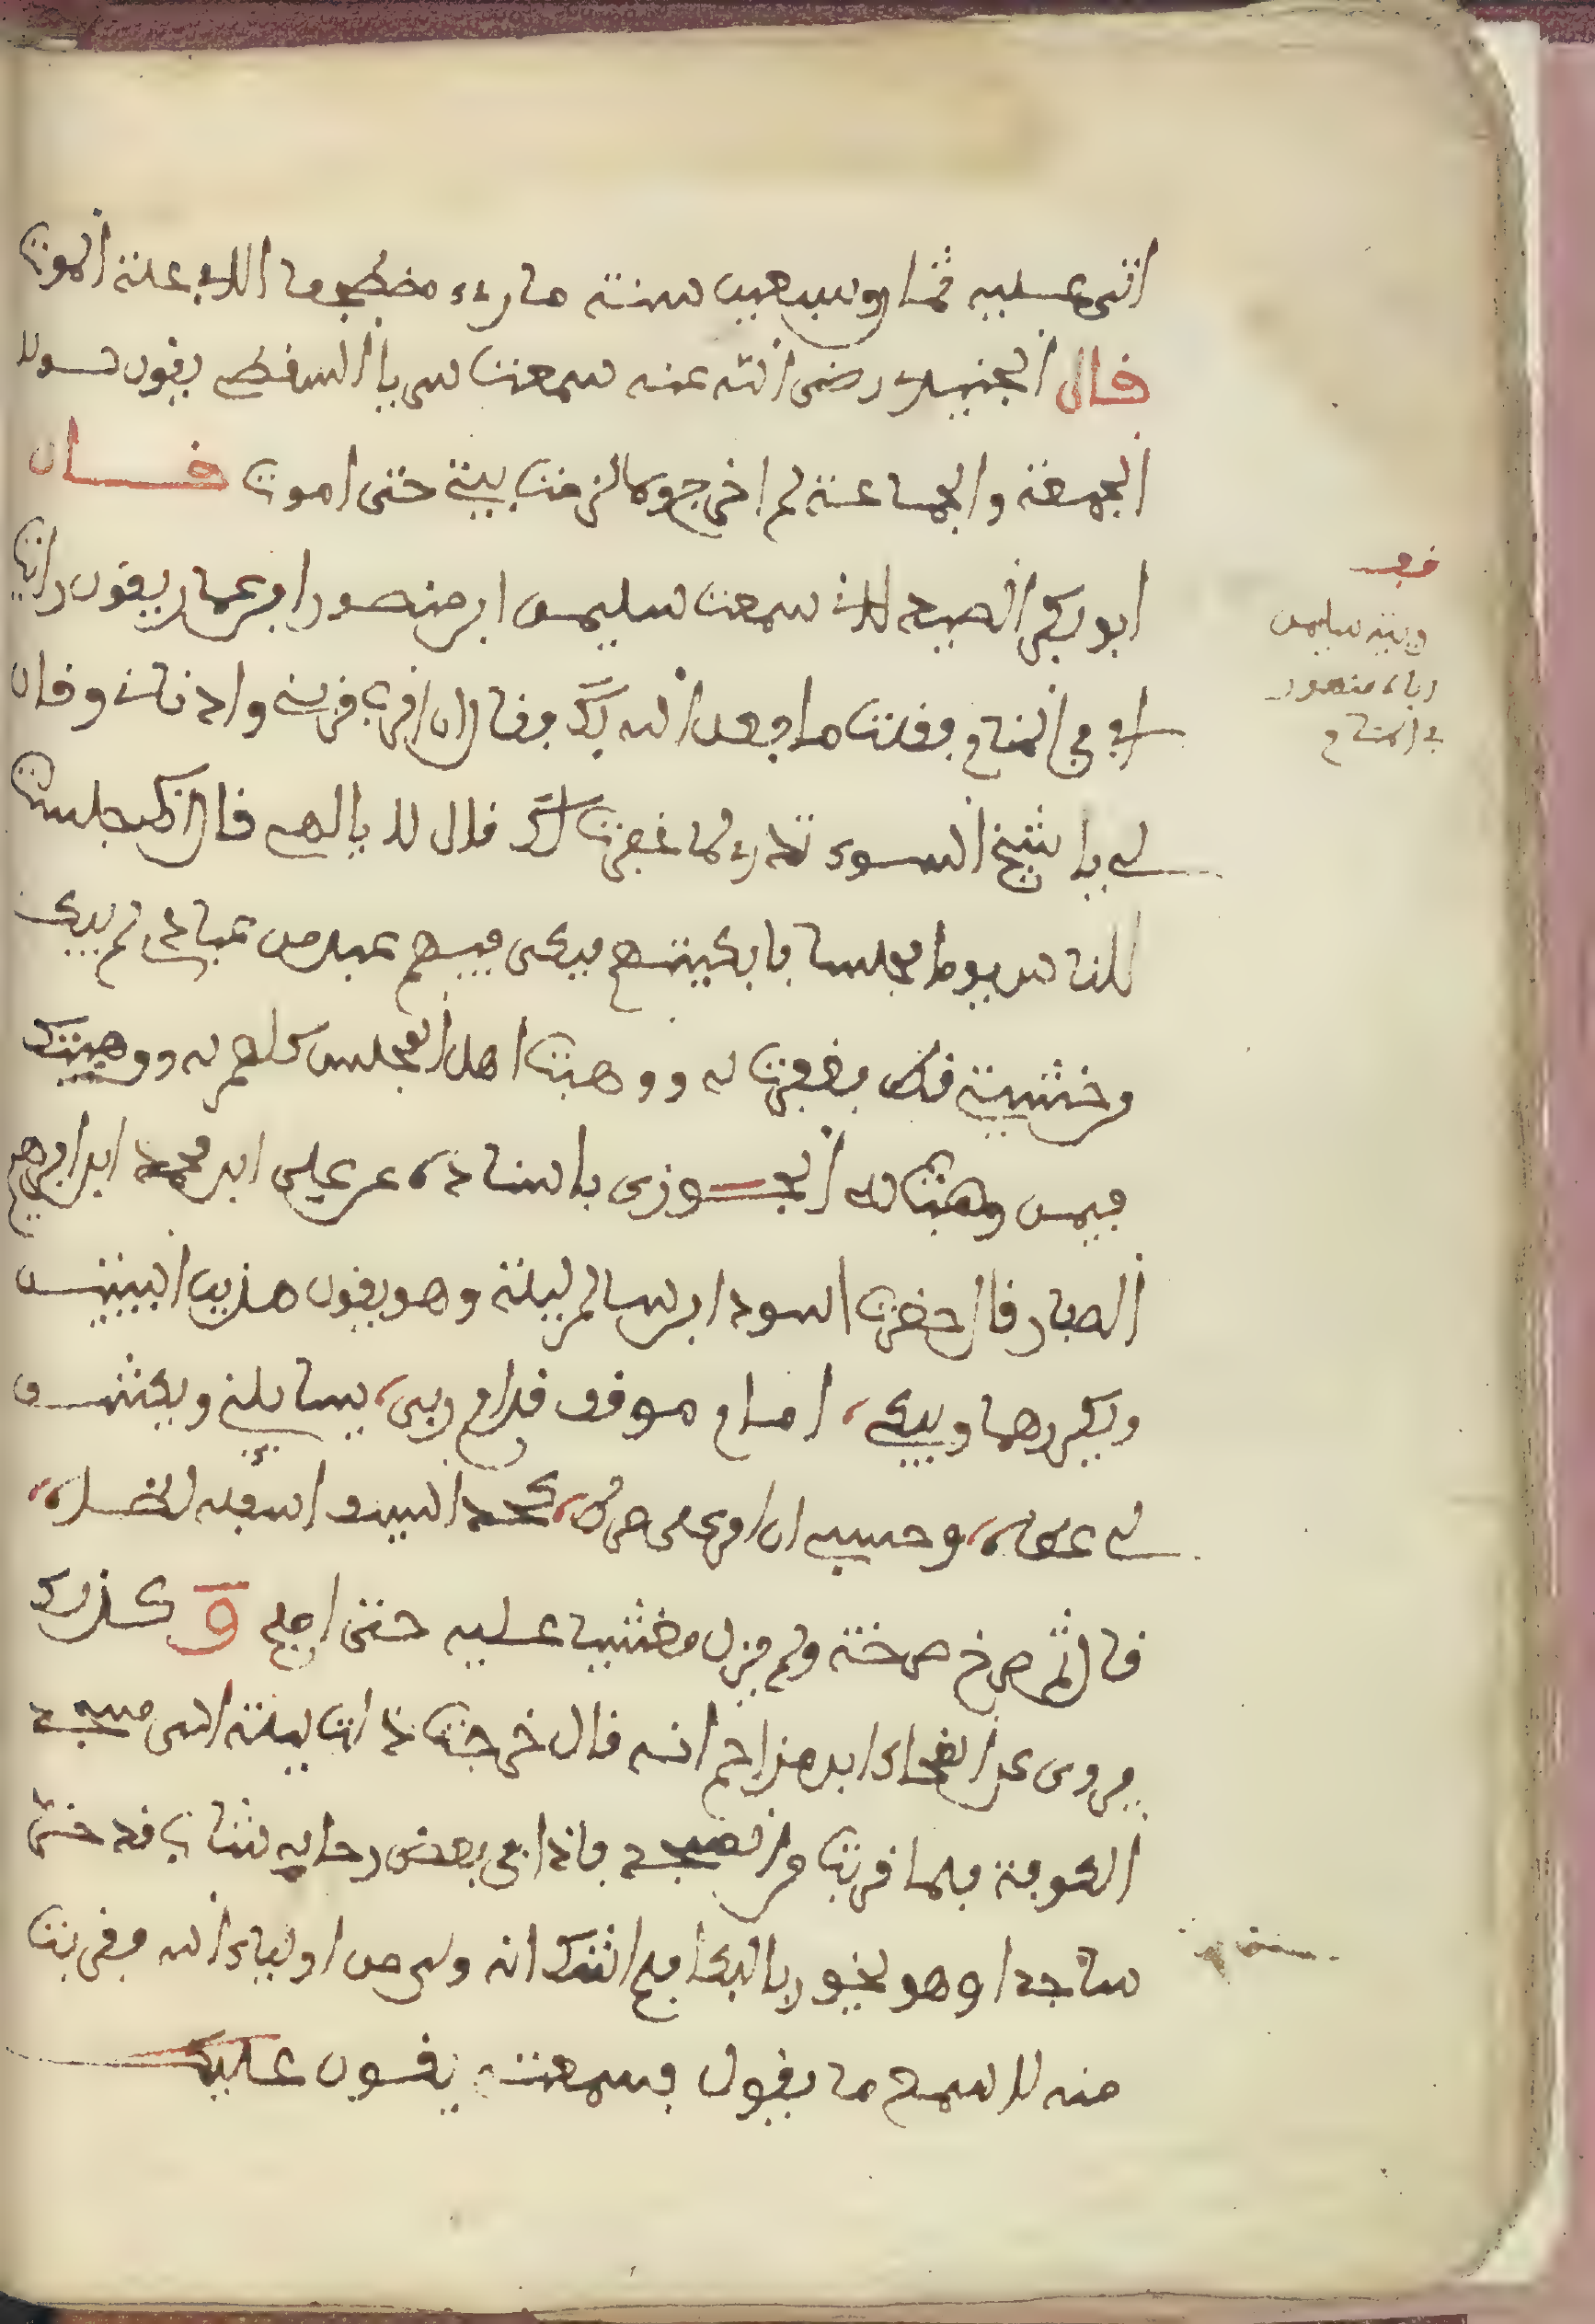 اتى عليه ثمان وسبعين سنة ما رءى مضطجعا الا في علة الموت
قال الجنيد رضي الله عنه سمعت سريا السقطي يقول لولا
الجمعة والجماعة لم اخرج ولا لزمت بيتي حتى اموت قال
ابو بكر الصيدلاني سمعت سليمن ابن منصور ابن عمار يقول رايت
ابي في المنام فقلت ما فعل الله بك فقال ان قربني وادناني وقال
لي يا شيخ السوء تدري لما غفرت لك قال لا يا الهي قال انك جلست
للناس يوما مجلسا فابكيتهم فبكى فيهم عبد من عبادي لم يبك
من خشيتي قط فغفرت له ووهبت اهل المجلس كلهم له ووهبتك
فيمن وهبت له الجوزى باسناده عن علي ابن محمد ابن ابراهيم
الصفار قال حضرت اسود ابن سالم ليلة وهو يقول هذين البيتين
ويكررهما ويبكي امام موقف قدام ربي يسايلني ويكشف
لي غطاه وحسبي ان امر على صراط كحد السيف اسفله لظاه
قال ثم صرخ صرخة ولم يزل مغشيا عليه حتى اصبح و كذلك
يروى عن الضحاك ابن مزاحم انه قال خرجت ذات ليلة الى مسجد
الكوفة فلما قربت من المسجد فاذا في بعض رحابه شاب قد خر
ساجدا وهو يخور بالبكا فلم اشك انه ولي من اولياء الله فقربت
منه لاسمع ما يقول فسمعته يقول عليك
قف
رؤية سليمن
اباه منصور
في المنام